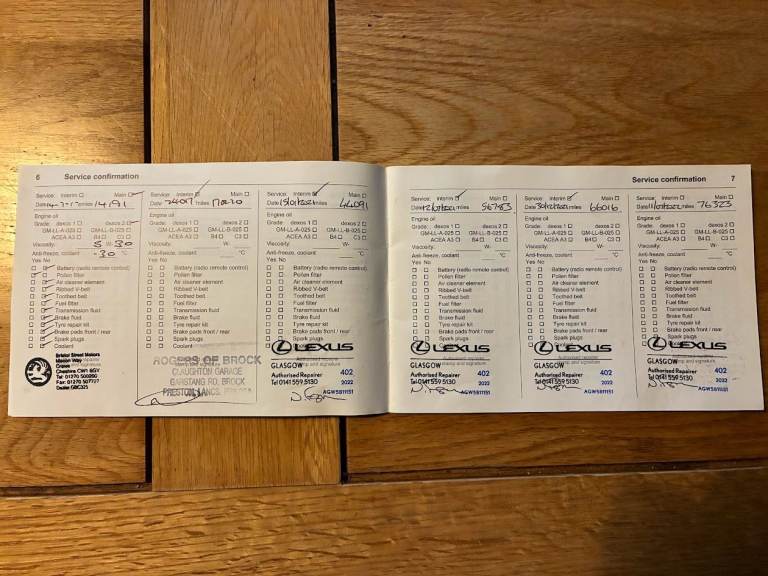 6 Service confirmation
Service: Interim Main
Date 14-7-17 miles 14191
Engine oil
Grade: dexos 1 dexos 2
GM-LL-A-025 GM-LL-B-025
ACEA A3 B4 C3
Viscosity: 5 W- 30
Anti-freeze, coolant -30 °C
Yes No
Battery (radio remote control)
Pollen filter
Air cleaner element
Ribbed V-belt
Toothed belt
Fuel filter
Transmission fluid
Brake fluid
Tyre repair kit
Brake pads front / rear
Spark plugs
Coolant
Bristol Street Motors
Crewe
Cheshire CW1
Service: Interim Main
Date miles
Engine oil
Grade: dexos 1 dexos 2
GM-LL-A-025 GM-LL-B-025
ACEA A3 B4 C3
Viscosity: W-
Anti-freeze, coolant °C
Yes No
Battery (radio remote control)
Pollen filter
Air cleaner element
Ribbed V-belt
Toothed belt
Fuel filter
Transmission fluid
Brake fluid
Tyre repair kit
Brake pads front / rear
Spark plugs
Coolant
ROGERS OF BROCK
CLAUGHTON GARAGE
GARSTANG RD, BROCK
PRESTON, LANCS.
Service: Interim Main
Date miles 44091
Engine oil
Grade: dexos 1 dexos 2
GM-LL-A-025 GM-LL-B-025
ACEA A3 B4 C3
Viscosity: W-
Anti-freeze, coolant °C
Yes No
Battery (radio remote control)
Pollen filter
Air cleaner element
Ribbed V-belt
Toothed belt
Fuel filter
Transmission fluid
Brake fluid
Tyre repair kit
Brake pads front / rear
Spark plugs
LEXUS
GLASGOW 402
Authorised Repairer
Tel 0141 559 5130 2022
AGW5811151
Service confirmation 7
Service: Interim Main
Date miles 56783
Engine oil
Grade: dexos 1 dexos 2
GM-LL-A-025 GM-LL-B-025
ACEA A3 B4 C3
Viscosity: W-
Anti-freeze, coolant °C
Yes No
Battery (radio remote control)
Pollen filter
Air cleaner element
Ribbed V-belt
Toothed belt
Fuel filter
Transmission fluid
Brake fluid
Tyre repair kit
Brake pads front / rear
Spark plugs
LEXUS
GLASGOW 402
Authorised Repairer
Tel 0141 559 5130 2022
AGW5811151
Service: Interim Main
Date miles 66016
Engine oil
Grade: dexos 1 dexos 2
GM-LL-A-025 GM-LL-B-025
ACEA A3 B4 C3
Viscosity: W-
Anti-freeze, coolant °C
Yes No
Battery (radio remote control)
Pollen filter
Air cleaner element
Ribbed V-belt
Toothed belt
Fuel filter
Transmission fluid
Brake fluid
Tyre repair kit
Brake pads front / rear
Spark plugs
LEXUS
GLASGOW 402
Authorised Repairer
Tel 0141 559 5130 2022
AGW5811151
Service: Interim Main
Date miles 76323
Engine oil
Grade: dexos 1 dexos 2
GM-LL-A-025 GM-LL-B-025
ACEA A3 B4 C3
Viscosity: W-
Anti-freeze, coolant °C
Yes No
Battery (radio remote control)
Pollen filter
Air cleaner element
Ribbed V-belt
Toothed belt
Fuel filter
Transmission fluid
Brake fluid
Tyre repair kit
Brake pads front / rear
Spark plugs
LEXUS
GLASGOW 402
Authorised Repairer
Tel 0141 559 5130 2022
AGW5811151